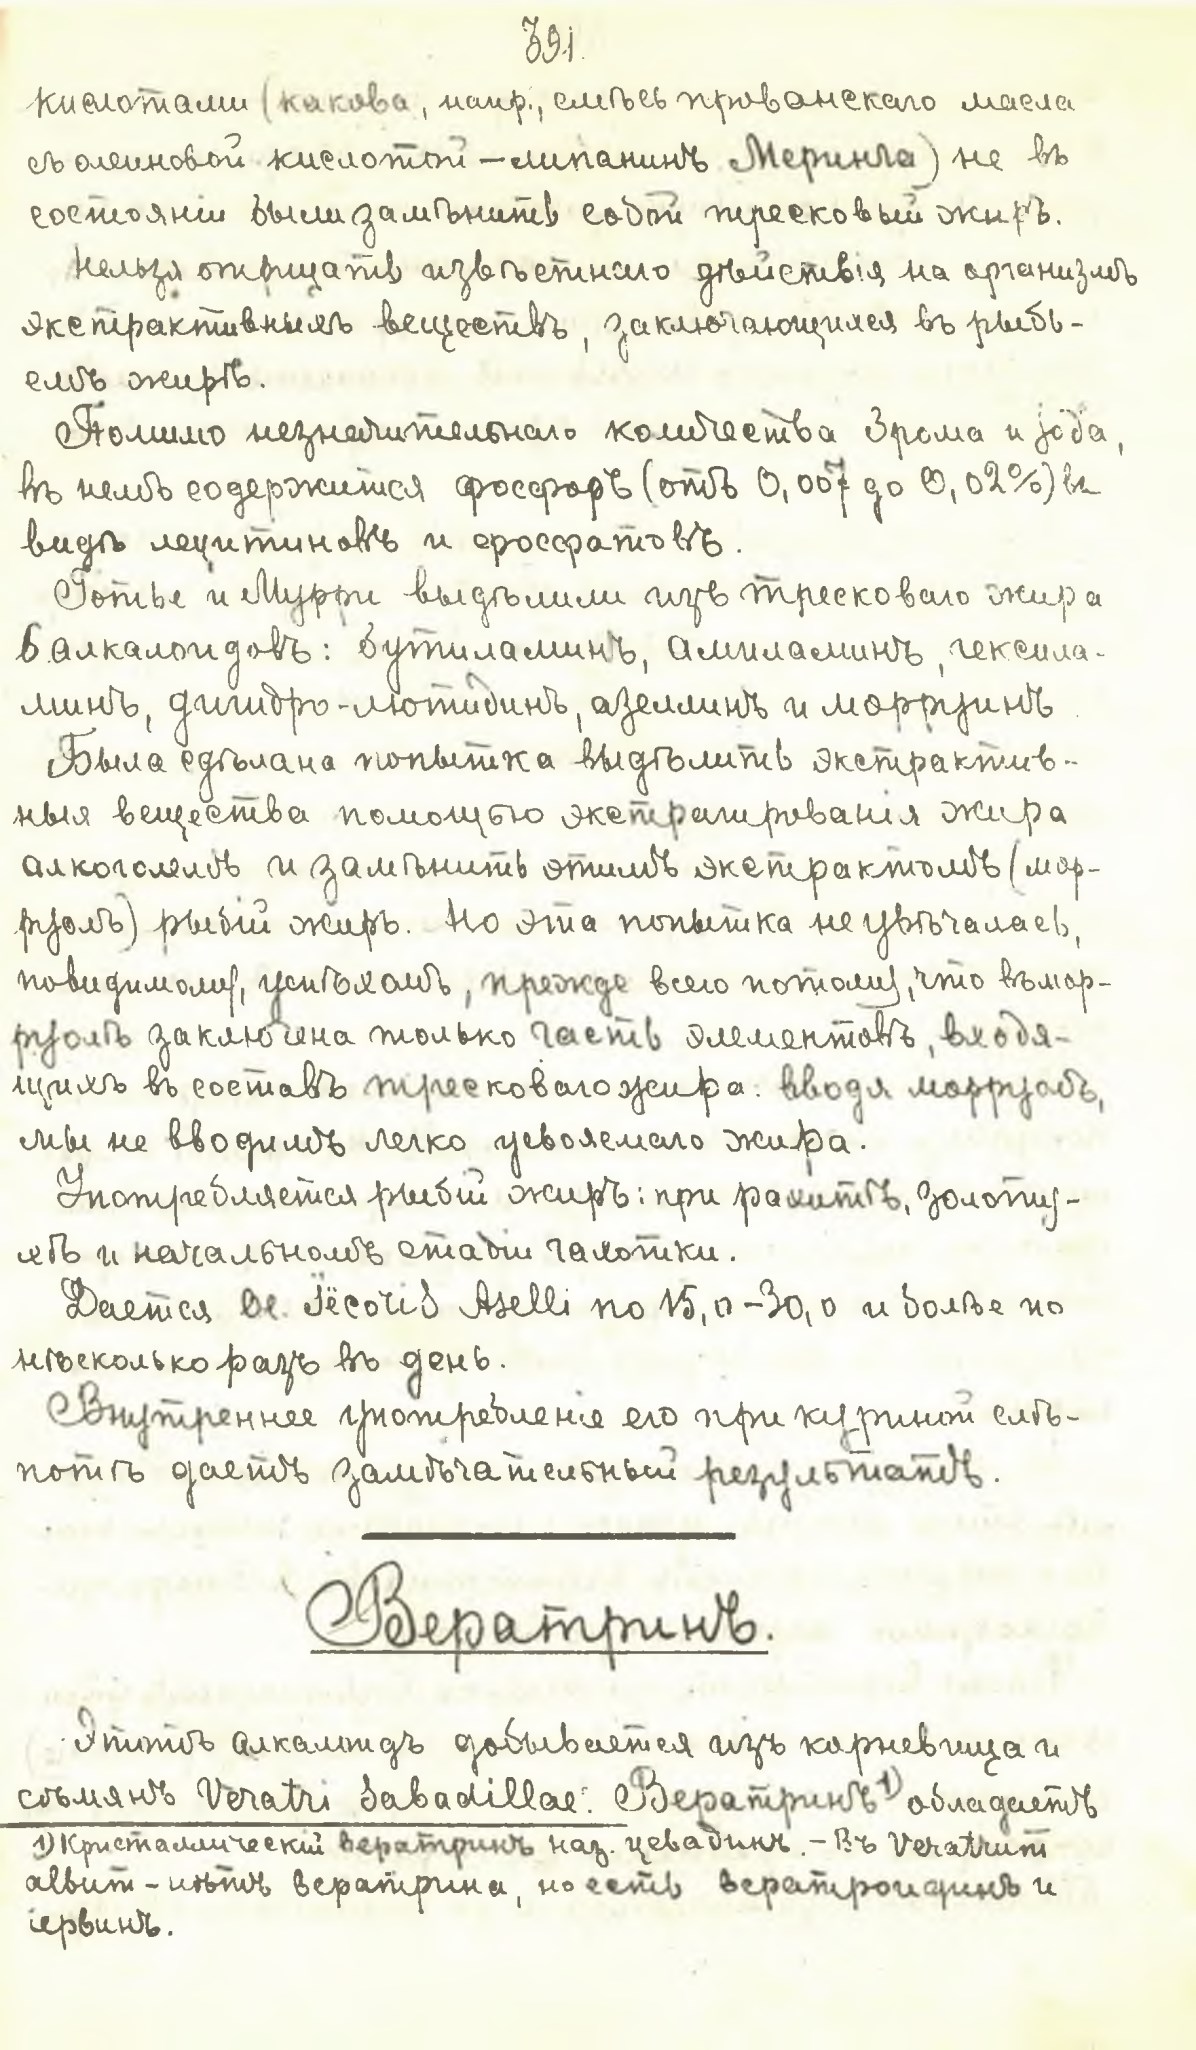 391.
кислотами (какова, напр., смѣсь прованскаго масла
съ олеиновой кислотой – липанинъ Меринга) не въ
состояніи были замѣнить собой тресковый жиръ.
Нельзя отрицать извѣстнаго дѣйствія на организмъ
экстрактивныхъ веществъ, заключающихся въ рыбь-
емъ жирѣ.
Помимо незначительнаго количества брома и іода,
въ немъ содержится фосфоръ (отъ 0,007 до 0,02%) въ
видѣ лецитиновъ и фосфатовъ.
Готье и Мурри выдѣлили изъ тресковаго жира
6 алкалоидовъ: бутиламинъ, амиламинъ, гексила-
минъ, дигидро-лютидинъ, азеллинъ и морруинъ
Была сдѣлана попытка выдѣлить экстрактив-
ныя вещества помощью экстрагированія жира
алкоголемъ и замѣнить этимъ экстрактомъ (мор-
руомъ) рыбій жиръ. Но эта попытка не увѣчалась,
повидимому, успѣхомъ, прежде всего потому, что въ мор-
руолѣ заключена только часть элементовъ, входя-
щихъ въ составъ тресковаго жира: вводя морруолъ,
мы не вводимъ легко усвояемаго жира.
Употребляется рыбій жиръ: при рахитѣ, золоту-
хѣ и начальномъ стадіи чахотки.
Дается Ol. Jecoris Aselli по 15,0–30,0 и болѣе по
нѣсколько разъ въ день.
Внутреннее употребленіе его при куриной слѣ-
потѣ даетъ замѣчательный результатъ.
Вератринъ.
Этотъ алкалоидъ добывается изъ корневища и
сѣмянъ Veratri Sabadillae. Вератринъ 1) обладаетъ
1) Кристаллическій вератринъ наз. цевадинъ. – Въ Veratrum
album – нѣтъ вератрина, но есть вератроидинъ и
іервинъ.